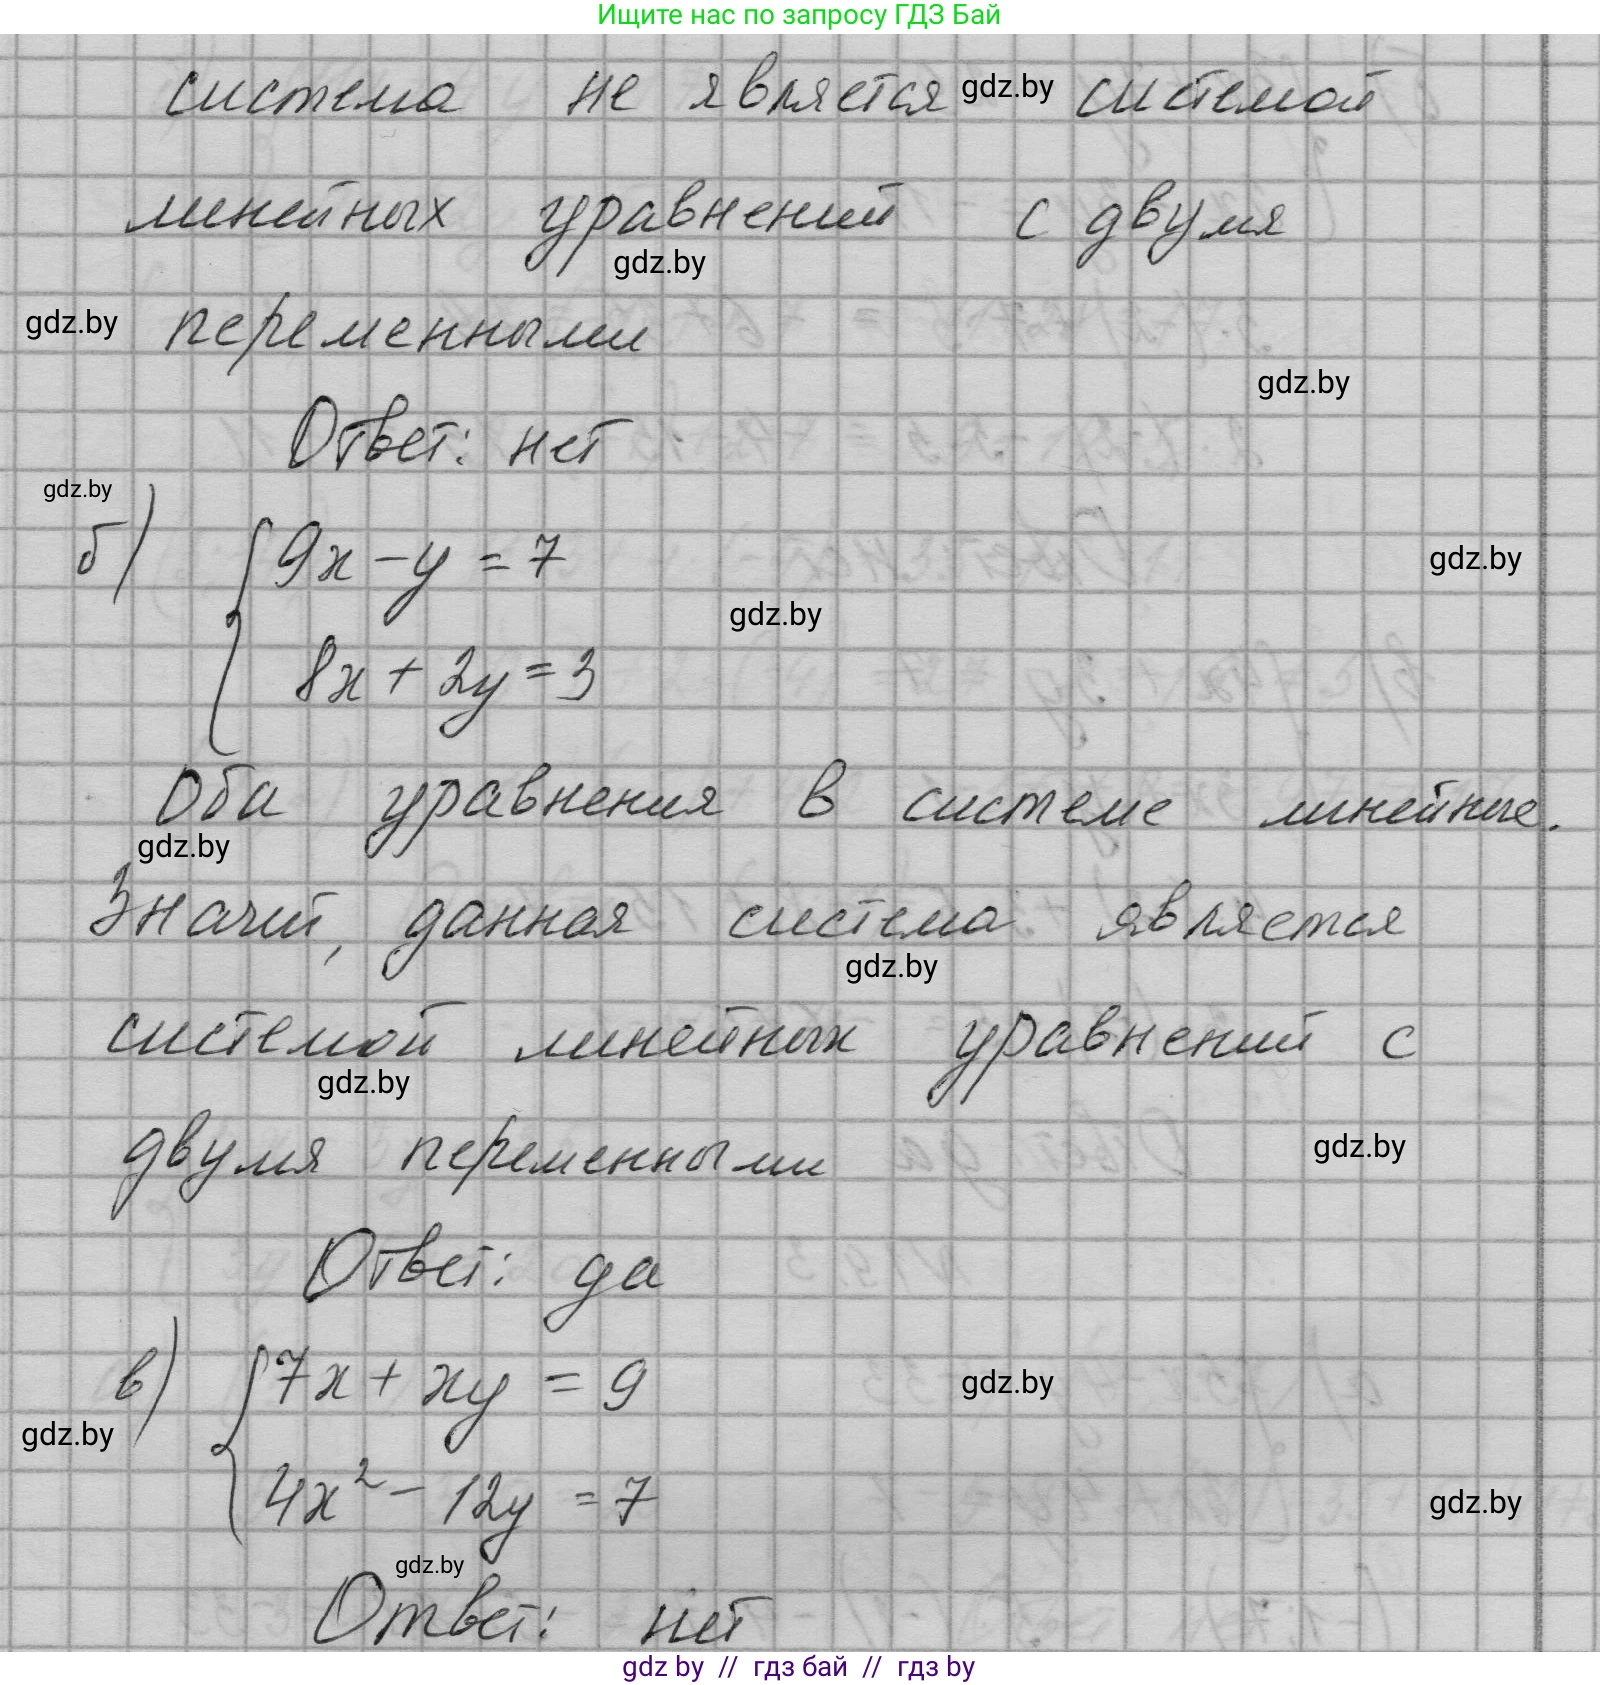 Ищите нас по запросу ГДЗ Бай
система не является gdz.by системой
линейных уравнений с двумя
gdz.by
gdz.by переменными
gdz.by
Ответ: нет
gdz.by
б) { 9x - y = 7
gdz.by
gdz.by
8x + 2y = 3
Оба уравнения в системе линейные.
gdz.by
Значит, данная система является
gdz.by
системой линейных уравнений с
gdz.by
двумя переменными
gdz.by
Ответ: да
в) { 7x + xy = 9
gdz.by
gdz.by
4x² - 12y = 7
gdz.by
gdz.by
Ответ: нет
gdz by // гдз бай // гдз by